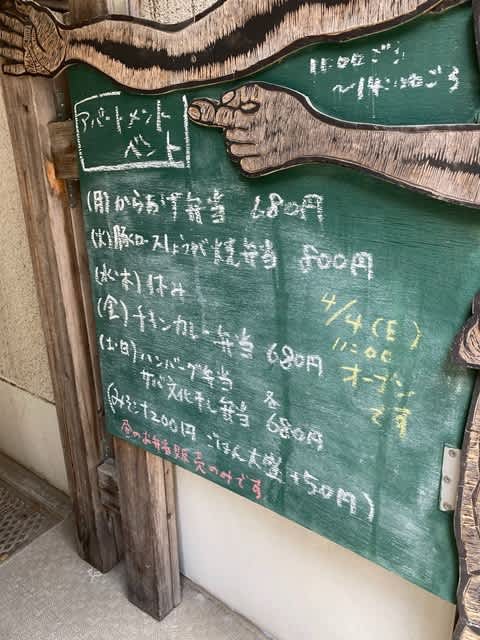 11:00ごろ
~14:00ごろ
アパートメント
ベント
(月)からあげ弁当 680円
(火)豚ロースしょうが焼弁当 800円
(水・木)休み
(金)チキンカレー弁当 680円
(土・日)ハンバーグ弁当
サバ文化干し弁当 各680円
(みそ汁200円 ごはん大盛+50円)
昼のお弁当販売のみです
4/4(日)
11:00
オープン
です